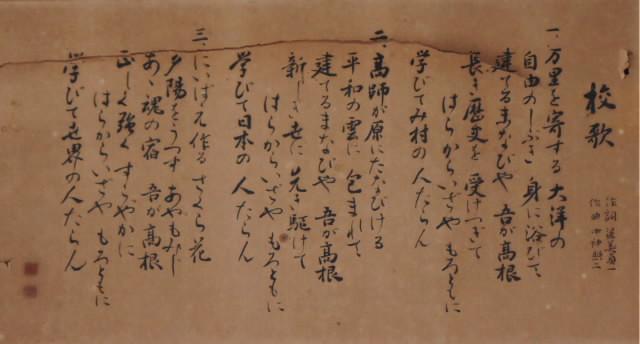 校歌
作詞
作曲
一、万里を寄する大洋の
自由のしぶき身に浴びて
建てるまなびや吾が高根
長き歴史を受けつぎて
はらからいざやもろともに
学びてみ村の人たらん
二、高師が原にたなびける
平和の雲に包まれて
建てるまなびや吾が高根
新しき世に先き駆けて
はらからいざやもろともに
学びて日本の人たらん
三、にいばえ作るさくら花
夕陽をうつす
あゝ魂の宿吾が高根
正しく強くすこやかに
はらからいざやもろともに
学びて世界の人たらん